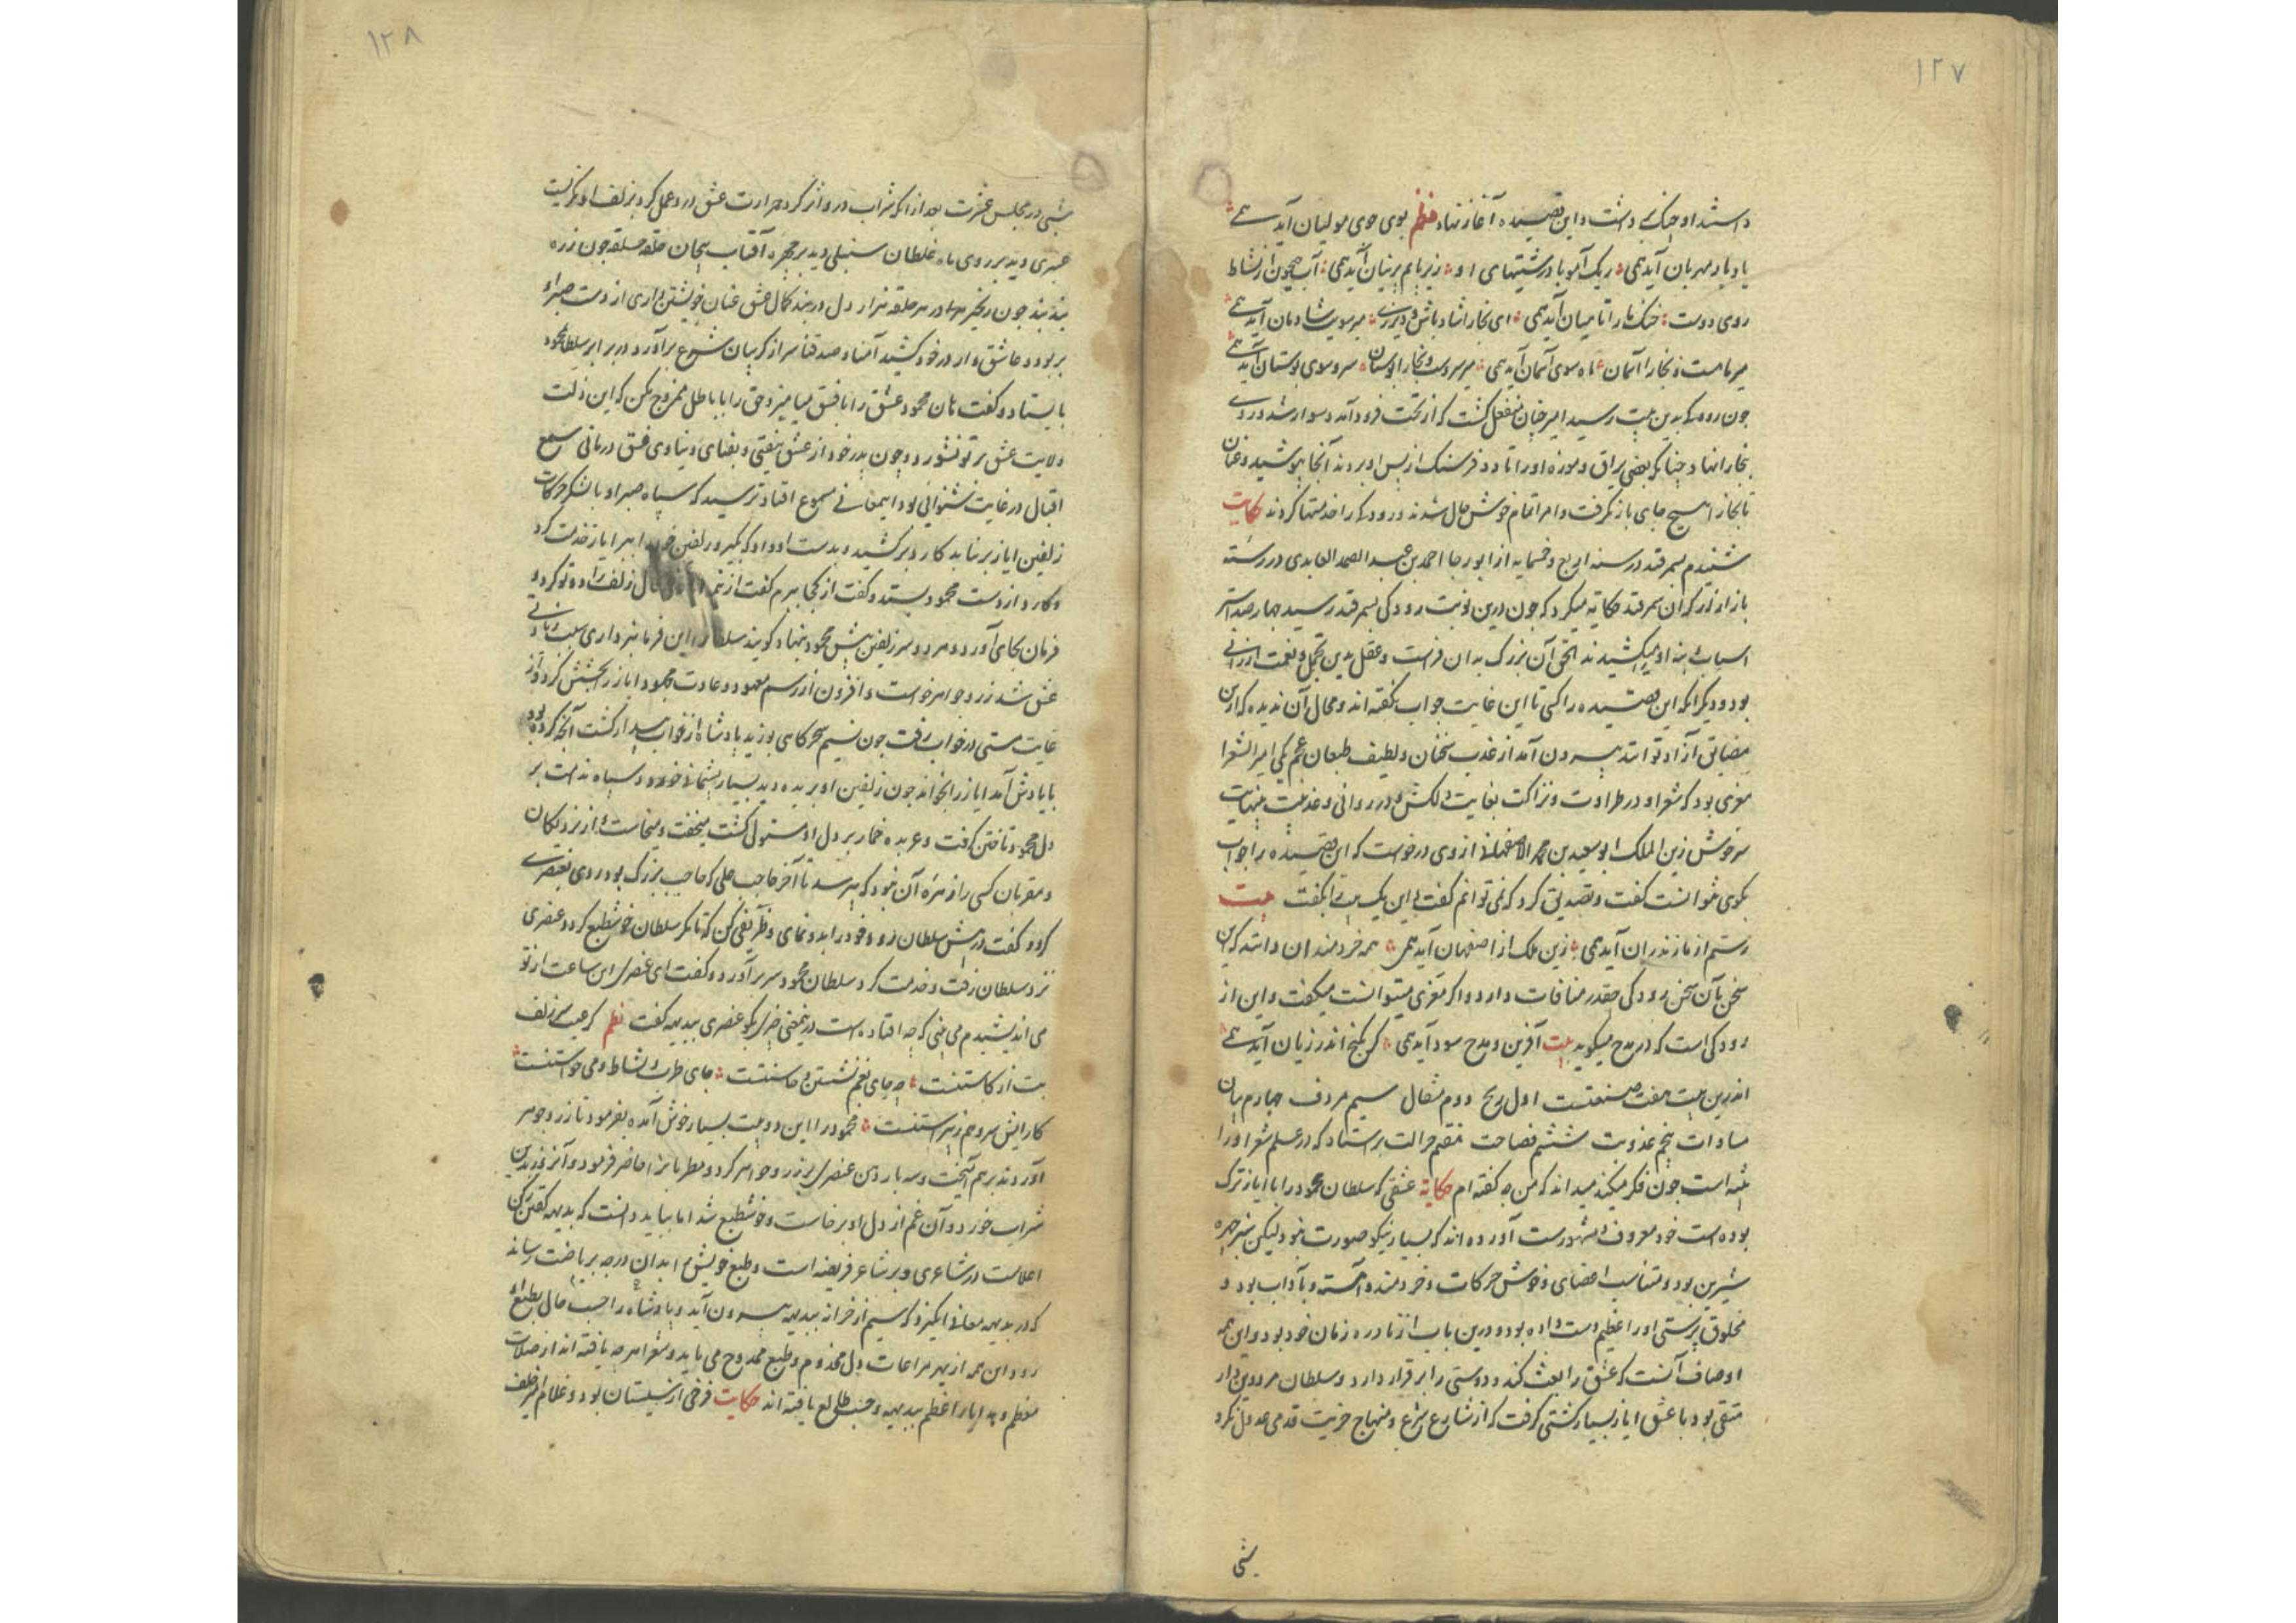 ۱۲۷
داشتند او چنگ بر داشت و این قصیده آغاز نهاد نظم بوی جوی مولیان آید همی
یاد یار مهربان آید همی ریک آمو با درشتیهای او زیر پایم پرنیان آید همی آب جیحون از نشاط
روی دوست خنک ما را تا میان آید همی ای بخارا شاد باش و دیر زی میر سویت شادمان آید همی
میر ماهست و بخارا آسمان ماه سوی آسمان آید همی میر سروست و بخارا بوستان سرو سوی بوستان آید همی
چون رودکی بدین بیت رسید امیر چنان منفعل گشت که از تخت فرود آمد و سوار شد و روی
بخارا نهاد چنانکه بعضی یراق و موزه او را تا دو فرسنک از پس او بردند آنجا پوشید و عنان
تا بخارا هیچ جای باز نگرفت و امرا تمام خوش حال شدند و رودکی را خدمتها کردند حکایت
شنیدم بسمرقند در سنه اربع و خمسمایه از ابو رجا احمد بن عبد الصمد العابدی در رسته
بازار زرگران سمرقند حکایه میکرد که چون درین نوبت رودکی بسمرقند رسید چهار صد اشتر
اسباب بنه او میکشیدند الحق آن بزرگ بدان فراست و عقل بدین تجمل و نعمت ارزانی
بود و دیگر آنکه این قصیده را کسی تا این غایت جواب نگفته اند و مجال آن ندیده که ازین
مضایق آزاد توانند بیرون آمد از عذب سخنان و لطیف طبعان عجم یکی امیر الشعرا
معزی بود که شعر او در طراوت و نزاکت بغایت دلکش و در روانی و عذبیت بنهایت
سرخوش زین الملک ابو سعید بن محمد الاصفهانی از وی درخواست که این قصیده را جواب
بگوی نتوانست گفت و تصدیق کرد که نمی توانم گفت این یک بیت را بگفت بیت
رستم از مازندران آید همی زین ملک از اصفهان آید همی همه خردمندان دانند که این
سخن با آن سخن رودکی چقدر منافات دارد و اگر معزی میتوانست میگفت و این از
رودکی است که در مدح میگوید بیت آفرین و مدح سود آید همی گر بگنج اندر زیان آید همی
اندرین بیت هفت صنعتست اول ریح دوم مثقال سیم مردف چهارم بیان
مساوات پنجم عذوبت ششم فصاحت هفتم جزالت هر استاد که در علم شعر او را
است چون فکر میکند میداند که من چه گفته ام حکایة عشقی که سلطان محمود را با ایاز ترک
بوده است خود معروف و مشهورست آورده اند که بسیار نیکو صورت نبود لیکن سبز چهره
شیرین بود و متناسب اعضای و خوش حرکات و خردمند و آهسته و باآداب بود و
مخلوق پرستی او را عظیم دست داده بود و درین باب از نادره زمان خود بود و این همه
اوصاف آنست که عشق را بعث کند و دوستی را برقرار دارد و سلطان مرد دین دار
متقی بود با عشق ایاز بسیار کشتی گرفت که از شارع شرع و منهاج حریت قدمی عدول نکرد
شبی
۱۲۸
شبی در مجلس عشرت بعد از آنکه شراب در و اثر کرد و حرارت عشق در و عمل کرد بزلف او نگریست
عنبری دید بر روی ماه غلطان سنبلی دید بر چهره آفتاب پیچان حلقه حلقه چون زره
بند بند چون زنجیر در هر حلقه هزار دل در بند کمال عشق عنان خویشتن داری از دست صبر او
بربود و عاشق وار در خود کشید آمنا و صدقنا سر از گریبان شرع برآورد و در برابر سلطان محمود
بایستاد و گفت هان محمود عشق را با فسق میامیز و حق را با باطل ممزوج مکن که این زلت
ولایت عشق بر تو بشورد و چون پدر خود از عشق بیفتی و بعنای دنیاوی فسق در مانی سمع
اقبال در غایت شنوائی بود این معانی مسموع افتاد ترسید که سپاه صبر او با لشکر حرکات
زلفین ایاز بر نیاید کارد برکشید و بدست او داد که بگیر و زلفین خود را ببر ایاز خدمت کرد
و کارد از دست محمود بستد و گفت از کجا ببرم گفت از نیمه ایاز زلف را دو تو کرد و
فرمان بجای آورد و هر دو سر زلفین پیش محمود بنهاد گویند سلطان را این فرمانبرداری سبب
عشق شد زر و جواهر خواست و افزون از رسم معهود و عادت محمود ایاز را بخشش کرد و از
غایت مستی در خواب رفت چون نسیم سحرگاهی بوزید پادشاه از خواب بیدار گشت آنچه کرده بود
با یادش آمد ایاز را بخواند چون زلفین او بریده دید بسیار پشیمانی خورد و سپاه ندامت بر
دل محمود تاختن گرفت و عربده خمار بر دل او مستولی گشت میخفت و میخاست و از نزدیکان
و مقربان کسی را زهره آن نبود که بپرسد تا آخر حاجب علی که حاجب بزرگ بود روی بعنصری
کرد و گفت در پیش سلطان رو و خود را بدو نمای و طریقی کن که تا مگر سلطان خوش طبع گردد عنصری
نزد سلطان رفت و خدمت کرد سلطان محمود سر برآورد و گفت ای عنصری این ساعت از تو
می اندیشیدم می بینی که چه افتاده است درین معنی چیزی بگو عنصری ببدیهه گفت نظم گر عیب سر زلف
بت از کاستنست چه جای بغم نشستن و خاستنست جای طرب و نشاط و می خواستنست
کارایش سرو هم ز پیراستنست محمود را این دو بیت بسیار خوش آمده بفرمود تا زر و جوهر
آوردند برهم آمیخت و سه بار دهن عنصری پر زر و جواهر کرد و مطربانرا حاضر فرمود و آن روز بدین
شراب خورد و آن غم از دل او برخاست و خوشطبع شد اما بباید دانست که بدیهه گفتن رکن
اعلاست در شاعری و بر شاعر فریضه است و طبع خویش را بدان درجه بریاضت رساند
که در بدیهه معانی انگیزد که سیم از خزانه ببدیهه بیرون آید و پادشاه را حسب حال بطبع او
رود و این همه از بهر مراعات دل مخدوم و طبع ممدوح می باید و شعرا هر چه یافته اند از صلات
معظم و ببدیهه و حسب طالع یافته اند حکایت فرخی از سیستان بود و غلام امیر خلف